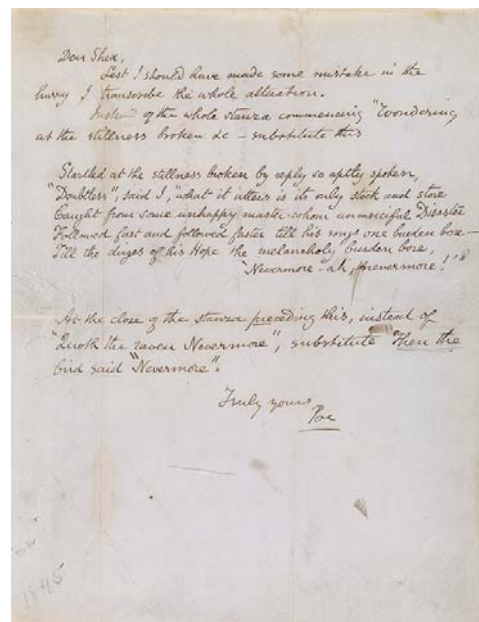 Dear Shea,
Lest I should have made some mistake in the
hurry I transcribe the whole alteration.
Instead of the whole stanza commencing "Wondering
at the stillness broken &c — substitute this
Startled at the stillness broken by reply so aptly spoken,
"Doubtless", said I, "what it utters is its only stock and store
Caught from some unhappy master whom unmerciful Disaster
Followed fast and followed faster till his songs one burden bore —
Till the dirges of his Hope the melancholy burden bore,
"Nevermore — ah, nevermore!"
At the close of the stanza preceding this, instead of
"Quoth the raven Nevermore", substitute "Then the
bird said "Nevermore".
Truly yours
Poe
1845